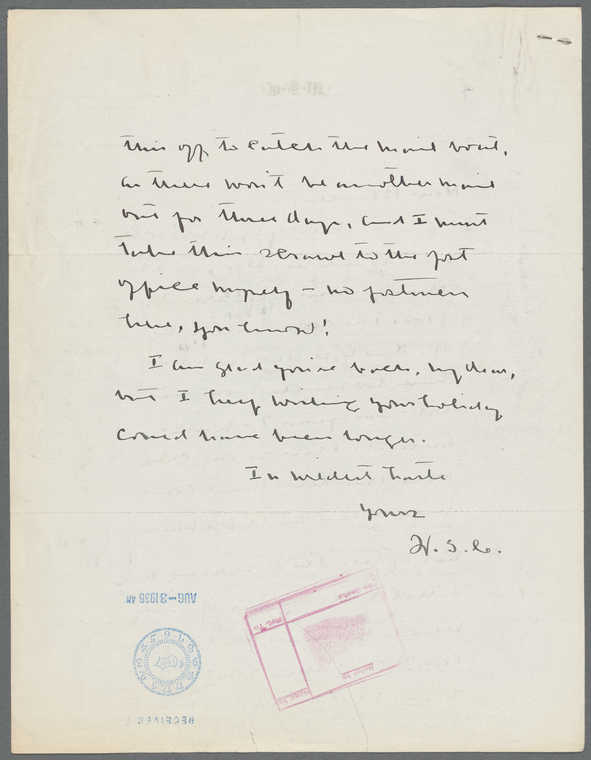 this off to catch the mail boat,
as there won't be another mail
out for three days, and I must
take this scrawl to the post
office myself – no postmen
here, you know!
I am glad you're back, my dear,
but I keep wishing your holiday
could have been longer.
In wildest haste
Yours
H. S. C.
AUG-3 1936 AM
RECEIVED